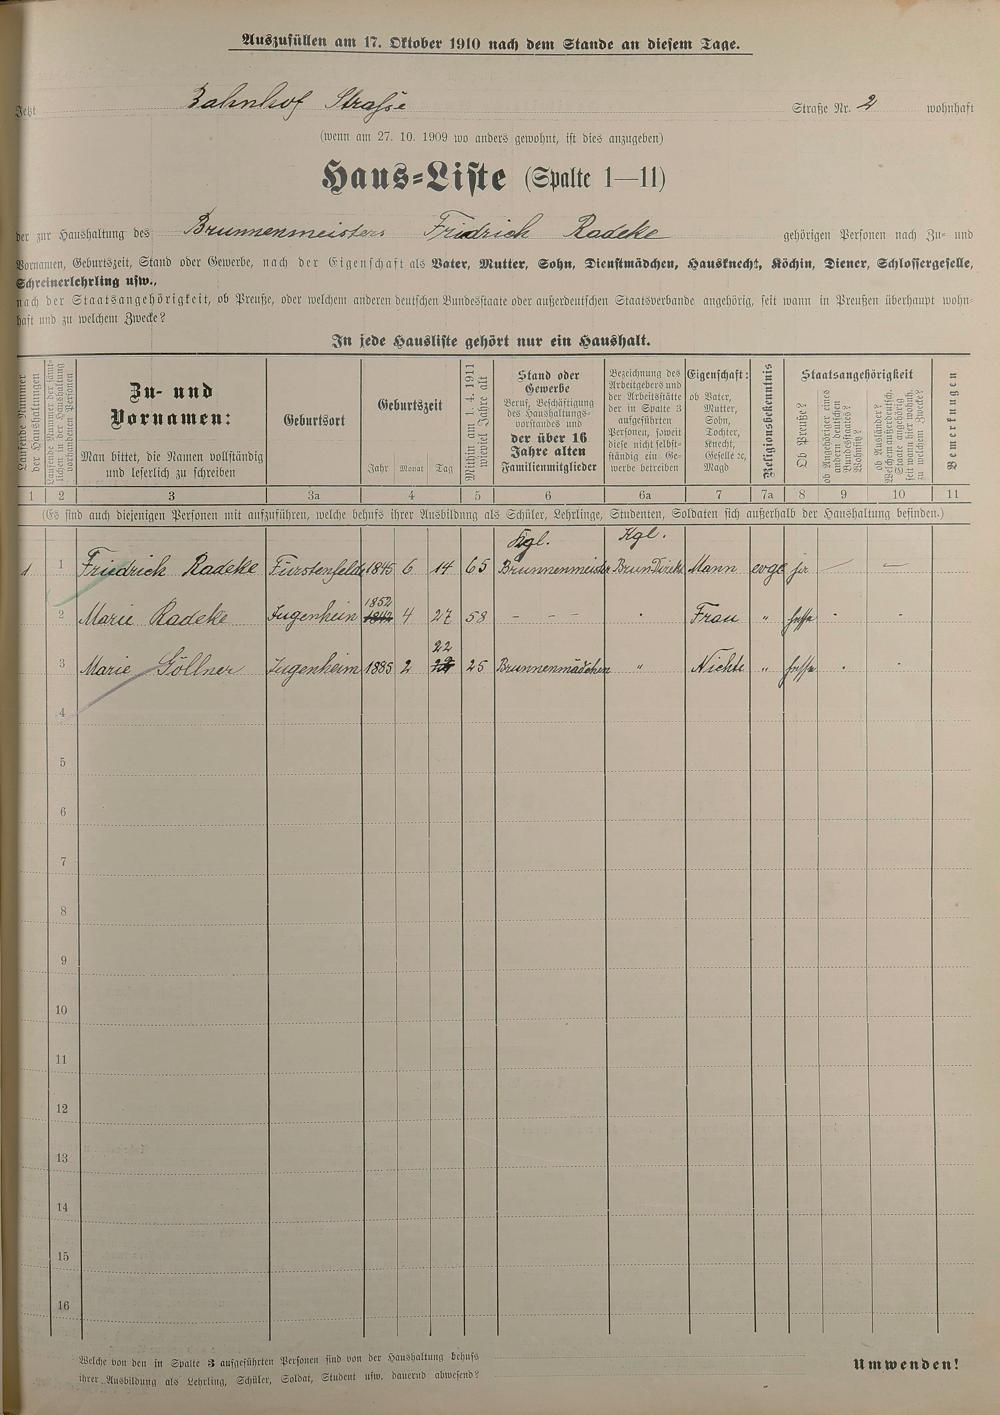 Auszufüllen am 17. Oktober 1910 nach dem Stande an diesem Tage.
Jetzt Bahnhof Straße Straße Nr. 2 wohnhaft
(wenn am 27. 10. 1909 wo anders gewohnt, ist dies anzugeben)
Haus-Liste (Spalte 1—11)
der zur Haushaltung des Brunnenmeisters Fridrich Radeke gehörigen Personen nach Zu- und
Vornamen, Geburtszeit, Stand oder Gewerbe, nach der Eigenschaft als Vater, Mutter, Sohn, Dienstmädchen, Hausknecht, Köchin, Diener, Schlossergeselle,
Schreinerlehrling usw.,
nach der Staatsangehörigkeit, ob Preuße, oder welchem anderen deutschen Bundesstaate oder außerdeutschen Staatsverbande angehörig, seit wann in Preußen überhaupt wohn-
haft und zu welchem Zwecke?
In jede Hausliste gehört nur ein Haushalt.
Laufende Nummer
der Haushaltungen
Laufende Nummer der sämt-
lichen in der Haushaltung
vorhandenen Personen
Zu- und
Vornamen:
Man bittet, die Namen vollständig
und leserlich zu schreiben
Geburtsort
Geburtszeit
Jahr Monat Tag
Mithin am 1. 4. 1911
wieviel Jahre alt
Stand oder
Gewerbe
Beruf, Beschäftigung
des Haushaltungs-
vorstandes und
der über 16
Jahre alten
Familienmitglieder
Bezeichnung des
Arbeitgebers und
der Arbeitsstätte
der in Spalte 3
aufgeführten
Personen, soweit
diese nicht selbst-
ständig ein Ge-
werbe betreiben
Eigenschaft:
ob Vater,
Mutter,
Sohn,
Tochter,
Knecht,
Geselle ec,
Magd
Religionsbekenntnis
Staatsangehörigkeit
Ob Preuße?
ob Angehöriger eines
andern deutschen
Bundesstaates?
Wohnsitz?
ob Ausländer?
Welchem außerdeutsch.
Staate angehörig
seit wann hier wohnh.
zu welchem Zwecke?
Bemerkungen
1 2 3 3a 4 5 6 6a 7 7a 8 9 10 11
(Es sind auch diejenigen Personen mit aufzuführen, welche behufs ihrer Ausbildung als Schüler, Lehrlinge, Studenten, Soldaten sich außerhalb der Haushaltung befinden.)
Kgl. Kgl.
1 1 Friedrich Radeke Fürstenfelde 1845 6 14 65 Brunnenmeister Brun Direkt Mann evgl ja — —
1852
2 Marie Radeke Jugenheim 1842 4 27 58 – – Frau "
22
3 Marie Göllner Jugenheim 1885 2 25 Brunnenmädchen " Nichte "
4
5
6
7
8
9
10
11
12
13
14
15
16
Welche von den in Spalte 3 aufgeführten Personen sind von der Haushaltung behufs
ihrer Ausbildung als Lehrling, Schüler, Soldat, Student usw. dauernd abwesend?
Umwenden!